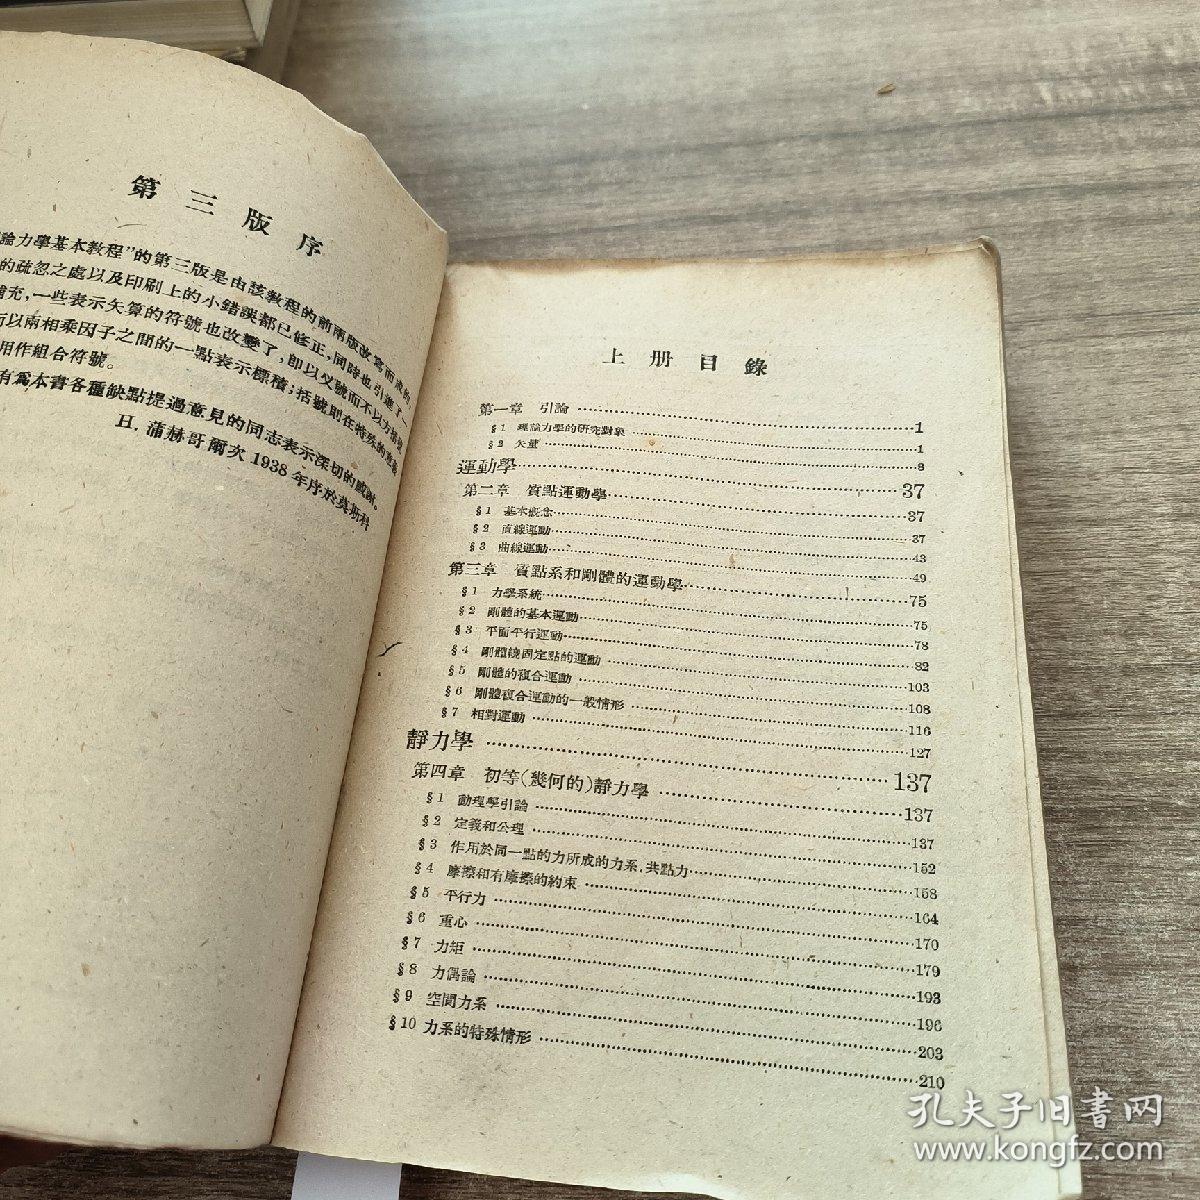 第三版序
論力學基本教程”的第三版是由該教程的前兩版改寫而成的
的疏忽之處以及印刷上的小錯誤都已修正,同時也引進了
補充,一些表示矢算的符號也改變了,即以叉號而不以方括號
以兩相乘因子之間的一點表示標積;括號則在特殊的
用作組合符號。
有為本書各種缺點提過意見的同志表示深切的感謝。
H. 蒲赫哥爾次 1938年序於莫斯科
上册目錄
第一章 引論 1
§1 理論力學的研究對象 1
§2 矢量 8
運動學 37
第二章 質點運動學 37
§1 基本概念 37
§2 直線運動 43
§3 曲線運動 49
第三章 質點系和剛體的運動學 75
§1 力學系統 75
§2 剛體的基本運動 78
§3 平面平行運動 82
§4 剛體繞固定點的運動 103
§5 剛體的複合運動 108
§6 剛體複合運動的一般情形 116
§7 相對運動 127
靜力學 137
第四章 初等(幾何的)靜力學 137
§1 動理學引論 137
§2 定義和公理 152
§3 作用於同一點的力所成的力系,共點力 158
§4 摩擦和有摩擦的約束 164
§5 平行力 170
§6 重心 179
§7 力矩 193
§8 力偶論 196
§9 空間力系 203
§10 力系的特殊情形 210
孔夫子旧書网
www.kongfz.com